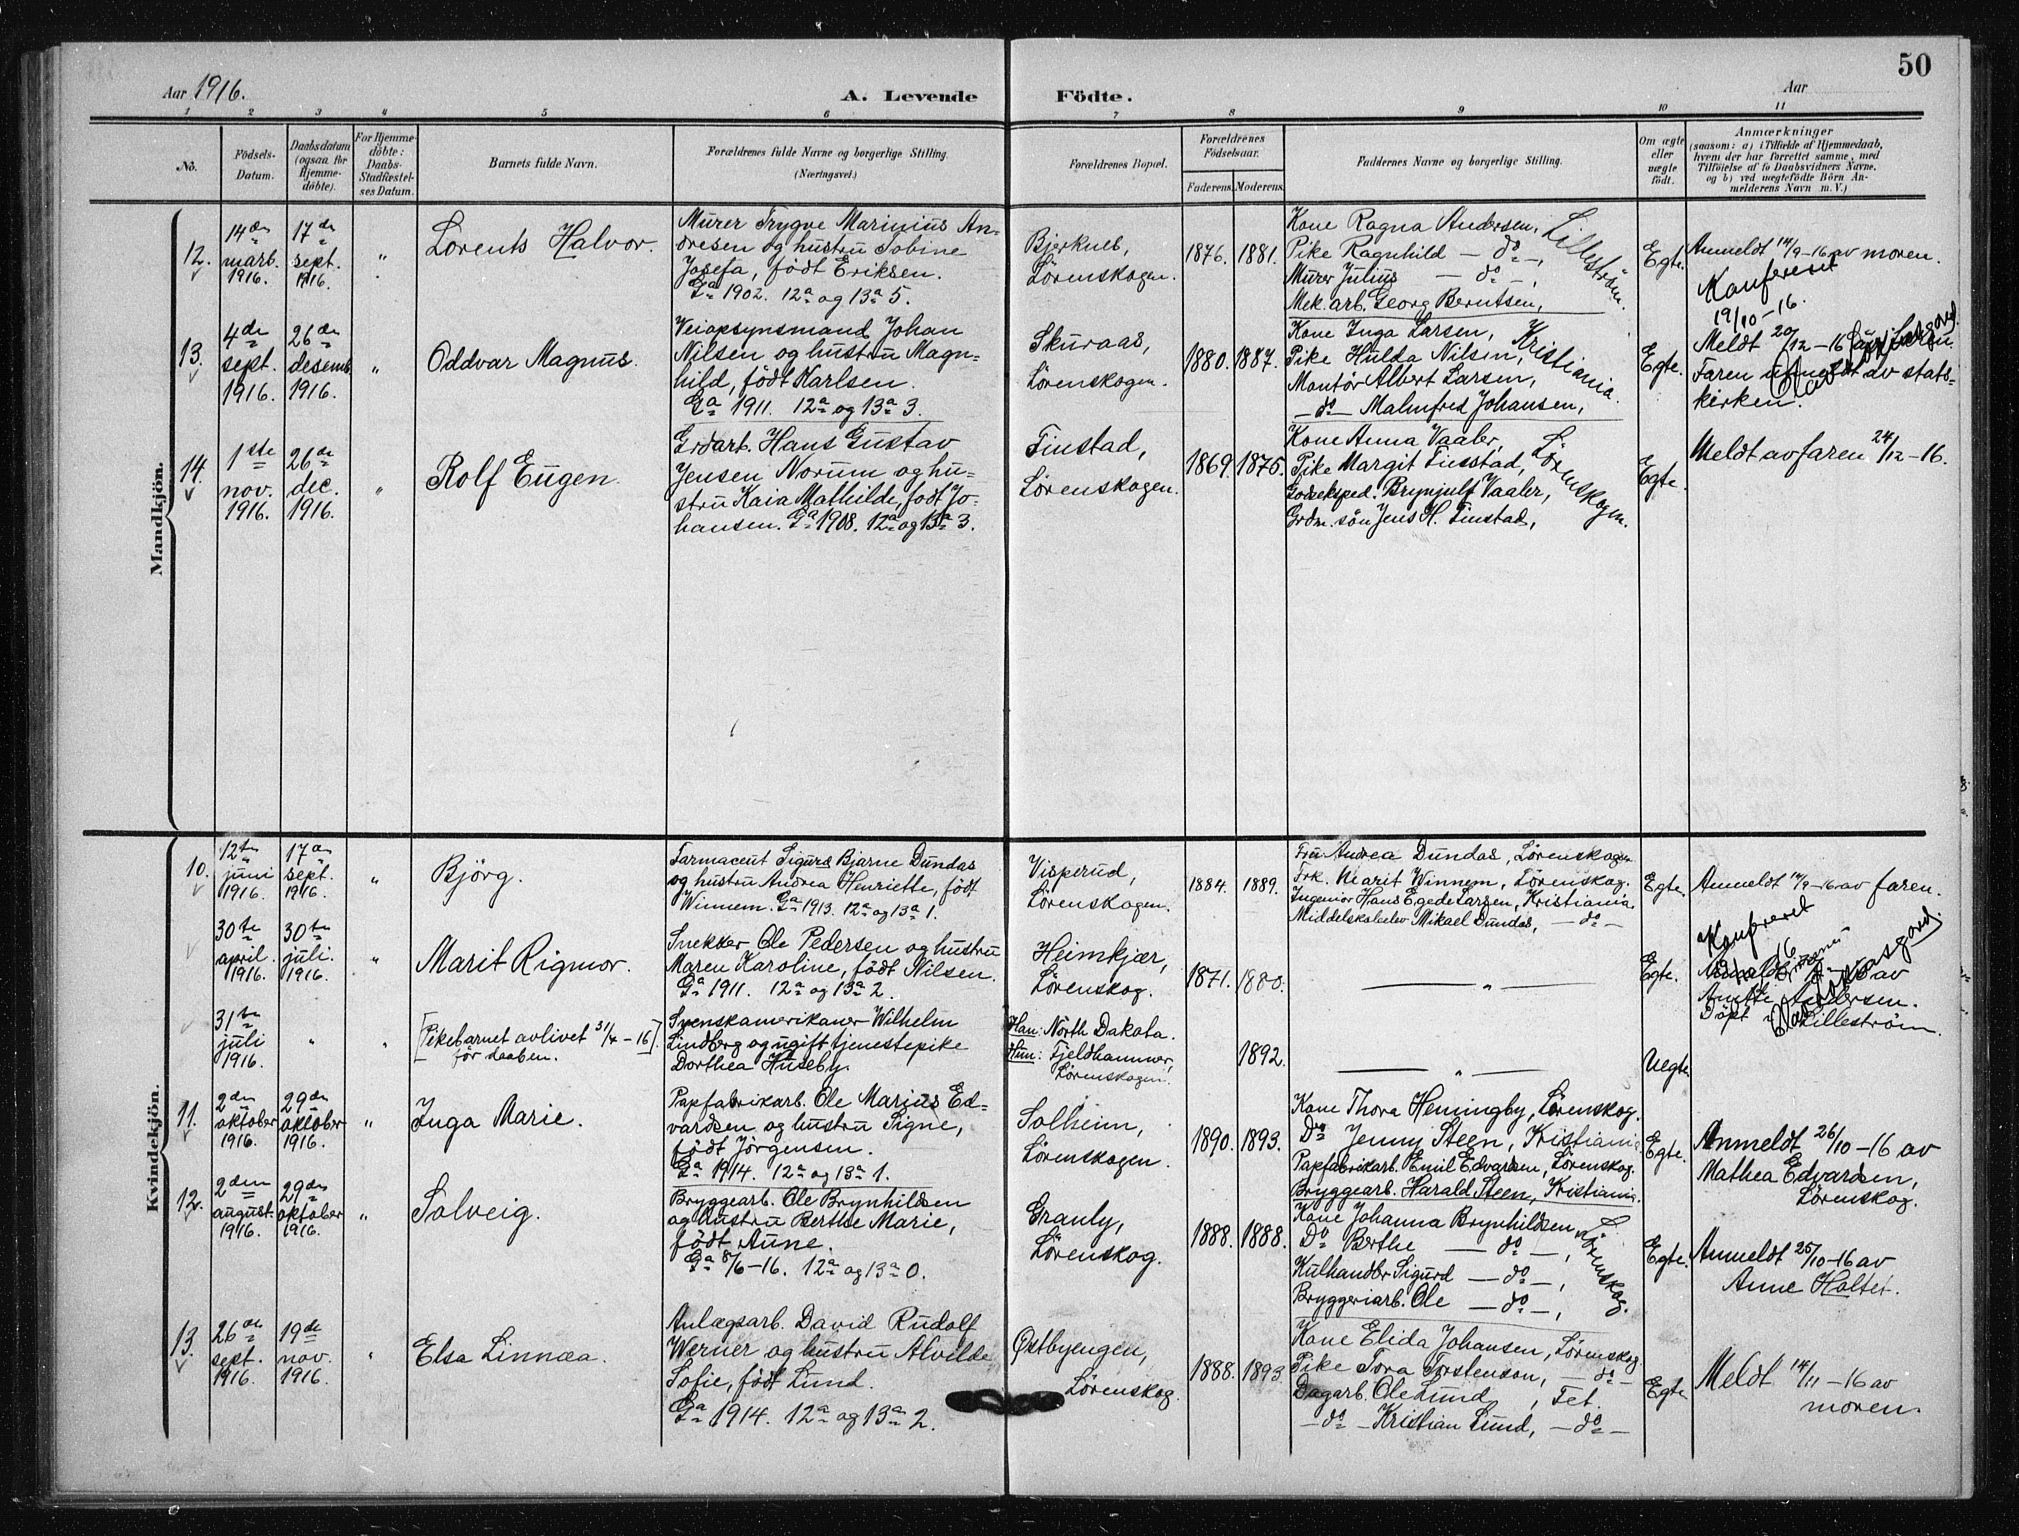 50
Aar 1916.
A. Levende Födte.
Aar
1 2 3 4 5 6 7 8 9 10 11
No.
Födsels-
Datum.
Daabsdatum
(ogsaa for
Hjemme-
döbte).
For Hjemme-
döbte:
Daabs-
Stadfæstel-
ses Datum.
Barnets fulde Navn.
Forældrenes fulde Navne og borgerlige Stilling.
(Næringsvei.)
Forældrenes Bopæl.
Forældrenes
Födselsaar.
Faderens. Moderens.
Faddernes Navne og borgerlige Stilling.
Om ægte
eller
uægte
födt.
Anmærkninger
(saasom: a) i Tilfælde af Hjemmedaab,
hvem der har forrettet samme, med
Tilföielse af to Daabsvidners Navne.
og b) ved uægtefödte Börn An-
melderens Navn m. V.)
Mandkjön.
12.
14de
marts
1916.
17de
sept.
1916.
"
Lorents Halvor.
Murer Trygve Marinius An-
dresen og hustru Tobine
Josefa, født Eriksen.
Ga 1902. 12a og 13a 5.
Bjerknes,
Lørenskogen.
1876. 1881.
Kone Ragna Andersen,
Pike Ragnhild — do —,
Murer Julius — do —,
Mek. arb. Georg Berntsen,
Lillestrøm.
Egte.
Anmeldt 14/9-16 av moren.
Konfereret
19/10-16.
13.
4de
sept.
1916.
26de
desemb
1916.
"
Oddvar Magnus.
Veiopsynsmand Johan
Nilsen og hustru Magn-
hild, født Karlsen.
Ga 1911. 12a og 13a 3.
Skuraas,
Lørenskogen.
1880. 1887.
Kone Inga Larsen,
Pike Hulda Nilsen,
Montør Albert Larsen,
— do — Malmfred Johansen,
Kristiania.
Egte.
Meldt 20/12-16 av
Faren utmeldt av stats-
kirken.
14.
1ste
nov.
1916.
26de
dec.
1916.
"
Rolf Eugen.
Grdarb. Hans Gustav
Jensen Norum og hu-
stru Kaia Mathilde, født Jo-
hansen. Ga 1908. 12a og 13a 3.
Finstad,
Lørenskogen.
1869. 1875.
Kone Anna Vaaler,
Pike Margit Finstad,
Godseksped. Brynjulf Vaaler,
Grdm. søn Jens H. Finstad,
Lørenskogen.
Egte.
Meldt av faren 24/12-16.
Kvindekjön.
10.
12te
juni
1916.
17de
sept.
1916.
"
Bjørg.
Farmaceut Sigurd Bjarne Dundas
og hustru Andrea Henriette, født
Winnem. Ga 1913. 12a og 13a 1.
Visperud,
Lørenskogen.
1884. 1889.
Fru Andrea Dundas, Lørenskogen
Frk. Marit Winnem, Lørenskog.
Ingeniør Hans Egede Larsen, Kristiania.
Middelskolelev Mikael Dundas, — do —
Egte.
Anmeldt 14/9-16 av faren.
30te
april.
1916.
30te
juli.
1916.
"
Marit Rigmor.
Snekker Ole Pedersen og hustru
Maren Karoline, født Nilsen.
Ga 1911. 12a og 13a 2.
Heimkjær,
Lørenskog.
1871. 1880.
— " —
Egte.
Konfereret
av
Anette Andersen.
Døpt i Lillestrøm.
31te
juli
1916.
"
"
[Pikebarnet avlivet 31/4-16].
før daaben.
Svenskamerikaner Wilhelm
Lindberg og ugift tjenestepike
Dorthea Huseby.
Han: North Dakota.
Hun: Fjeldhammer,
Lørenskogen.
1892.
— " —
Uegte.
11.
2den
oktober
1916.
29de
oktober
1916.
"
Inga Marie.
Papfabrikarb. Ole Marius Ed-
vardsen og hustru Signe,
født Jørgensen.
Ga 1914. 12a og 13a 1.
Solheim,
Lørenskogen.
1890. 1893.
Kone Thora Hemingby, Lørenskog.
Do Jenny Steen, Kristiania
Papfabrikarb. Emil Edvardsen, Lørenskog.
Bryggearb. Harald Steen, Kristiania.
Egte.
Anmeldt 26/10-16 av
Mathea Edvardsen,
Lørenskog.
12.
2den
august.
1916.
29de
oktober
1916.
"
Solveig.
Bryggearb. Ole Brynhildsen
og hustru Berthe Marie,
født Aune.
Ga 8/6-16. 12a og 13a 0.
Granly,
Lørenskog.
1888. 1888.
Kone Johanna Brynhildsen,
Do Berthe — do —,
Kulhandler Sigurd — do —,
Bryggeriarb. Ole — do —,
Lørenskog.
Egte.
Anmeldt 25/10-16 av
Anne Holter.
13.
26de
sept.
1916.
19de
nov.
1916.
"
Elsa Linnæa.
Anlægsarb. David Rudolf
Werner og hustru Alvilde
Sofie, født Lund.
Ga 1914. 12a og 13a 2.
Østbyengen,
Lørenskog.
1888. 1893.
Kone Elida Johansen, Lørenskog
Pike Tora Torstenson, — do —
Dagarb. Ole Lund, Fet.
— do — Kristian Lund, — do —
Egte.
Meldt 14/11-16 av
moren.